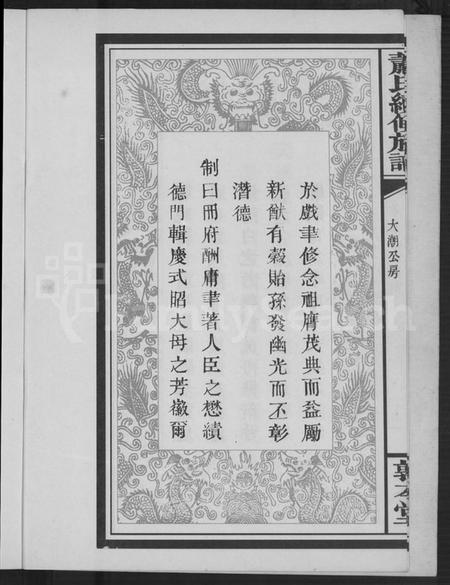 蕭氏續修族譜
大潮公房
敦本堂
於戲聿修念祖膺茂典而益勵
新猷有穀貽孫發幽光而丕彰
潛德
制曰冊府酬庸聿著人臣之懋績
德門輯慶式昭大母之芳徽爾